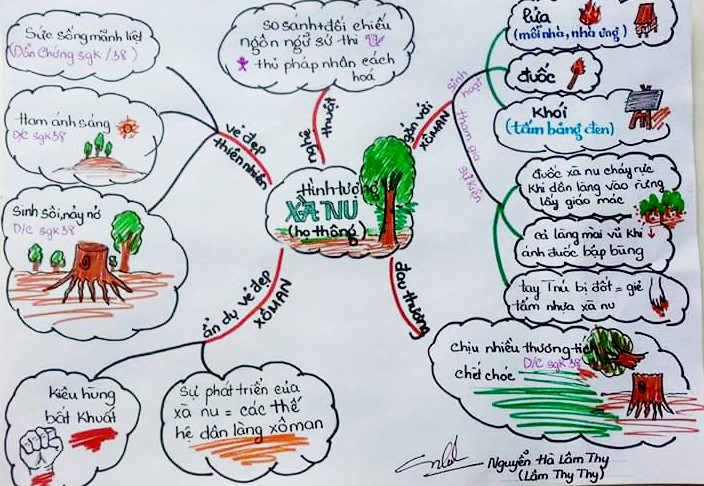 Sức sống mãnh liệt
(Dẫn Chứng sgk/38)
Ham ánh sáng
D/C sgk38
Sinh sôi, nảy nở
D/C sgk 38
vẻ đẹp
thiên nhiên
so sánh + đối chiếu
ngôn ngữ sử thi
thủ pháp nhân cách
hoá
nghệ
thuật
Hình tượng
XÀ NU
(họ thông)
gắn với
XÔMAN
sinh
hoạt
lửa
(mỗi nhà, nhà ưng)
đuốc
Khói
(tấm bảng đen)
tham gia
sự kiện
đuốc xà nu cháy rực
khi dân làng vào rừng
lấy giáo mác
cả làng mài vũ khí
ánh đuốc bập bùng
tay Tnú bị đốt = giẻ
tẩm nhựa xà nu
đau thương
chịu nhiều thương tích
D/C sgk 38
chết chóc
ẩn dụ vẻ đẹp
XÔMAN
Kiêu hùng
bất khuất
Sự phát triển của
xà nu = các thế
hệ dân làng xôman
Nguyễn Hà Lâm Thy
(Lâm Thy Thy)